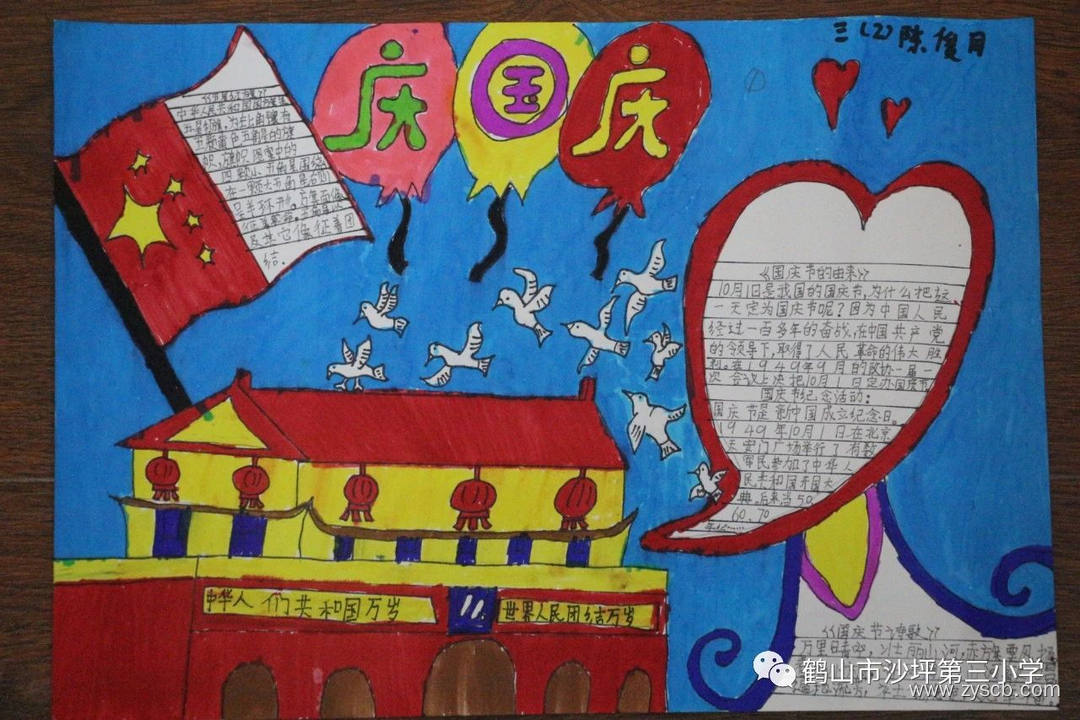 三(2)陈俊月
庆国庆
中华人民共和国国旗是
五星红旗，为左上角镶有
五颗黄色五角星的旗
帜，旗帜图案中的
四颗小五角星围绕
在一颗大五角星右侧
呈半环形。
及其它象征着团
结。
《国庆节的由来》
10月1日是我国的国庆节，为什么把这
一天定为国庆节呢？因为中国人民
经过一百多年的奋战，在中国共产党
的领导下，取得了人民革命的伟大胜
利。在1949年9月的政协一届一
次会议上决把10月1日定为国庆节
国庆节纪念活动：
国庆节是新中国成立纪念日。
1949年10月1日在北京
天安门广场举行了有数
军民参加了中华人
民共和国开国大
典。后来当50、
60、70
中华人们共和国万岁
世界人民团结万岁
《国庆节诗歌》
万里晴
鹤山市沙坪第三小学
www.zyscb.com